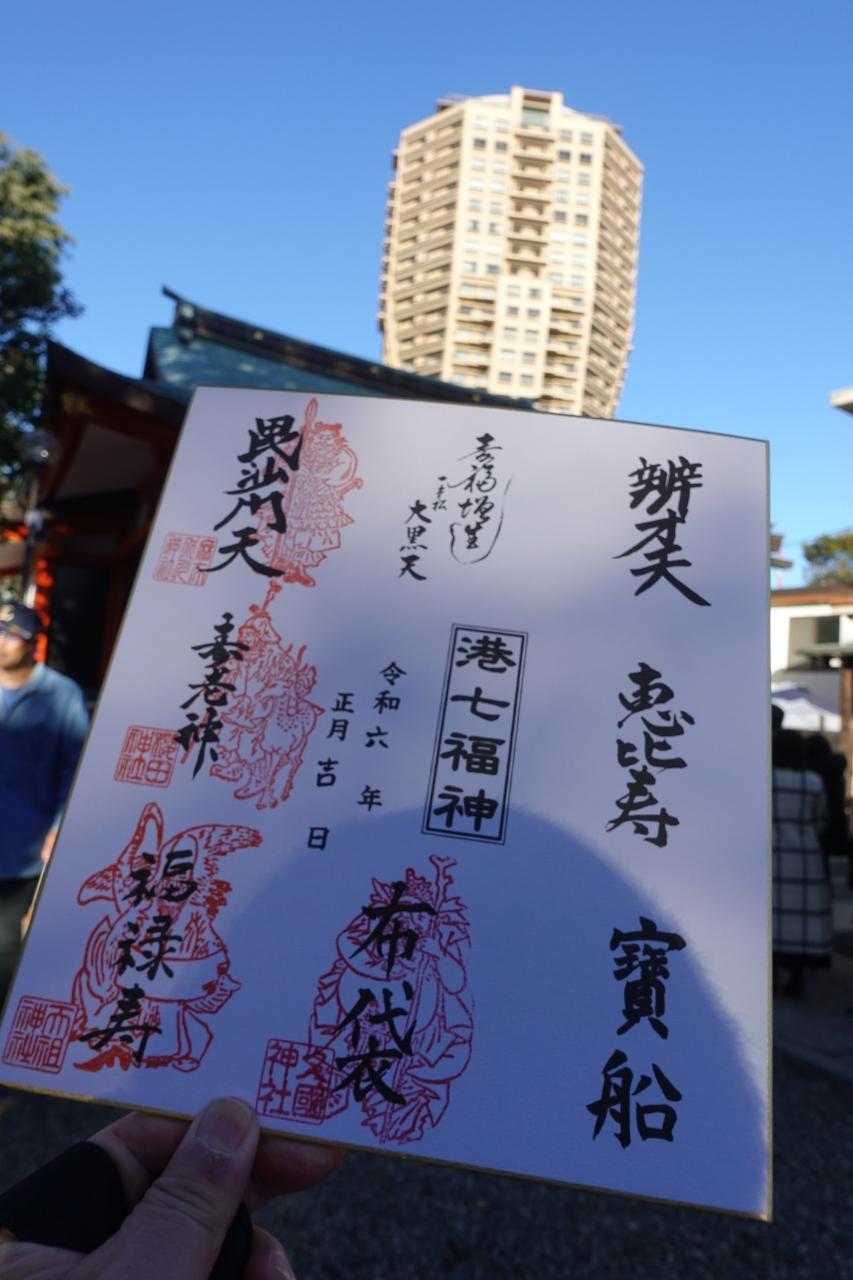 辨才天
恵比寿
寶船
寿福増生
一本松
大黒天
港七福神
令和六年
正月吉日
布袋
久國神社
毘沙門天
寿老神
櫻田神社
福禄寿
天祖神社